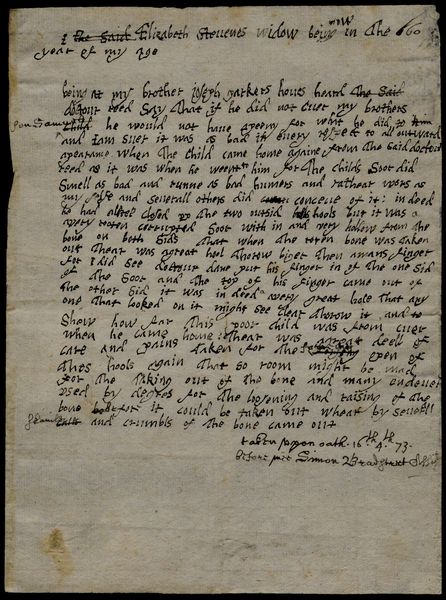 I the Said Elizabeth Steuenes widow being now in the 660
year of my age
being at my brother joseph parkers hous heard the Said
doctour reed Say That if he did not Cuer my brothers
child he would not have apeeny for what he did to him
and I am Suer it was as bad in euery respect to all outward
apearance when The Child came home againe from The Said doctour
reed as it was when he weent to him for The Childs Soor did
Smell as bad and runne as bad humers and rathear wors as
my selfe and seuerall others did conceue of it: in deed
he had closed up The two outsid hools but it was a
very rotten corrupted Soor with in and very hollow from the
bone on both Sids That when the roten bone was taken
out Thear was agreat hool Thorow biger Then amans finger
for I did See doctour dane put his finger in of the one Sid
of The Soor and The top of his finger came out of
the other Sid it was in deed avery great hole That any
one that looked on it might See Clear Thorow it and to
Shew how far This poor child was from cuer
when he came home Thear was agreat deell of
care and pains taken for the open of
thes hools again that So room might be mad
for the taking out of the bone and many
used by degres for the loosning and raising of the
bone before it could be taken out whear by seuerll
and crumbls of the bone came out
taken uppon oath. 16th 4. 73.
before mee Simon Bradstreet